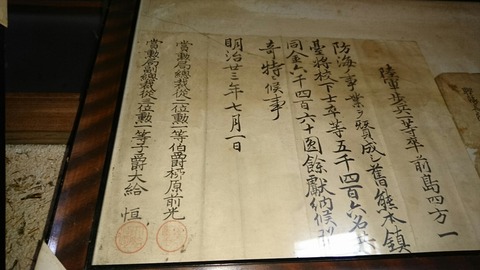 陸軍歩兵一等卒前島四方一
防海ノ事業ヲ賛成シ舊熊本鎮
臺将校下士卒等五千四百六名
同金六千四百六十圓餘献納候段
奇特ニ候事
明治廿三年七月一日
賞勲局總裁従二位勲一等伯爵柳原前光
賞勲局副總裁従三位勲一等子爵大給恒